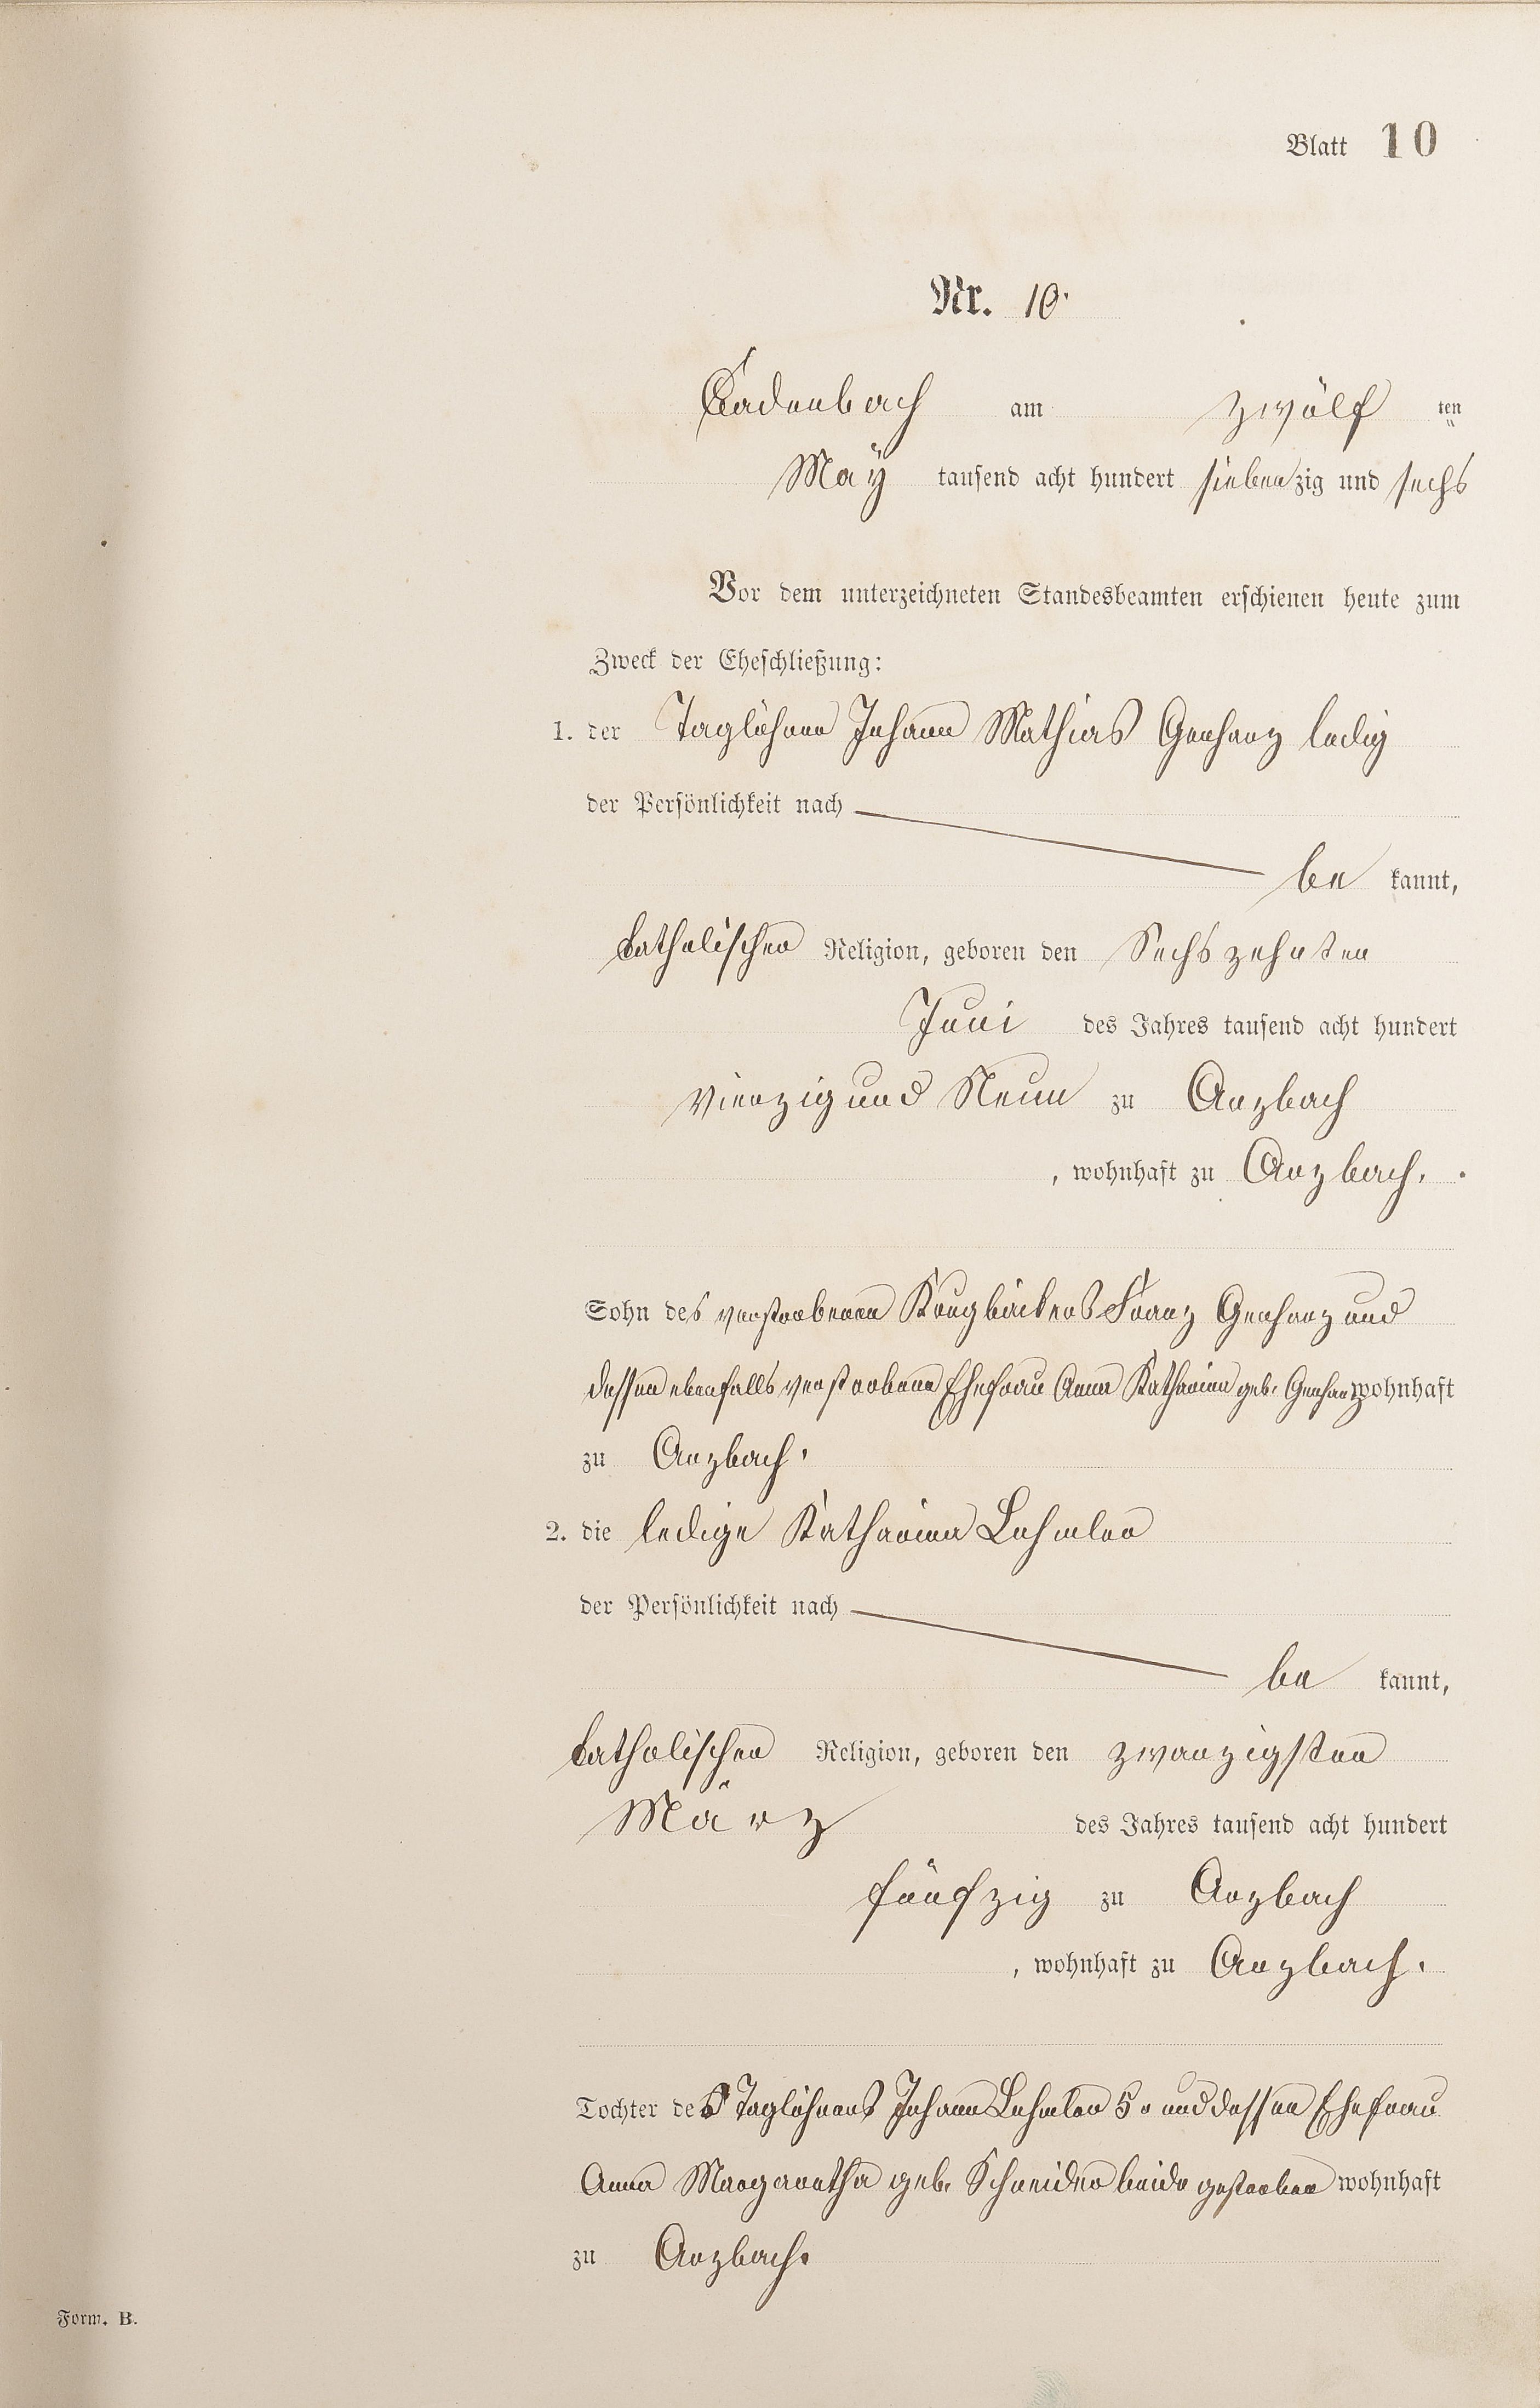 Blatt 10
Nr. 10.
Cadenbach am zwölf ten
May tausend acht hundert siebenzig und sechs
Vor dem unterzeichneten Standesbeamten erschienen heute zum
Zweck der Eheschließung:
1. der Taglöhner Johann Mathias Gerharz ledig
der Persönlichkeit nach
be kannt,
katholischer Religion, geboren den Sechszehnten
Juni des Jahres tausend acht hundert
vierzig und Neun zu Arzbach
, wohnhaft zu Arzbach.
Sohn des verstorbenen Krugbäckers Franz Gerharz und
dessen ebenfalls verstorbene Ehefrau Anna Katharina geb. Gerharz wohnhaft
zu Arzbach.
2. die ledige Katharina Lehmler
der Persönlichkeit nach
be kannt,
katholischer Religion, geboren den zwanzigsten
März des Jahres tausend acht hundert
fünfzig zu Arzbach
, wohnhaft zu Arzbach.
Tochter des Taglöhners Johann Lehmler und dessen Ehefrau
Anna Margaretha geb. Schneider beide gestorben wohnhaft
zu Arzbach.
Form. B.